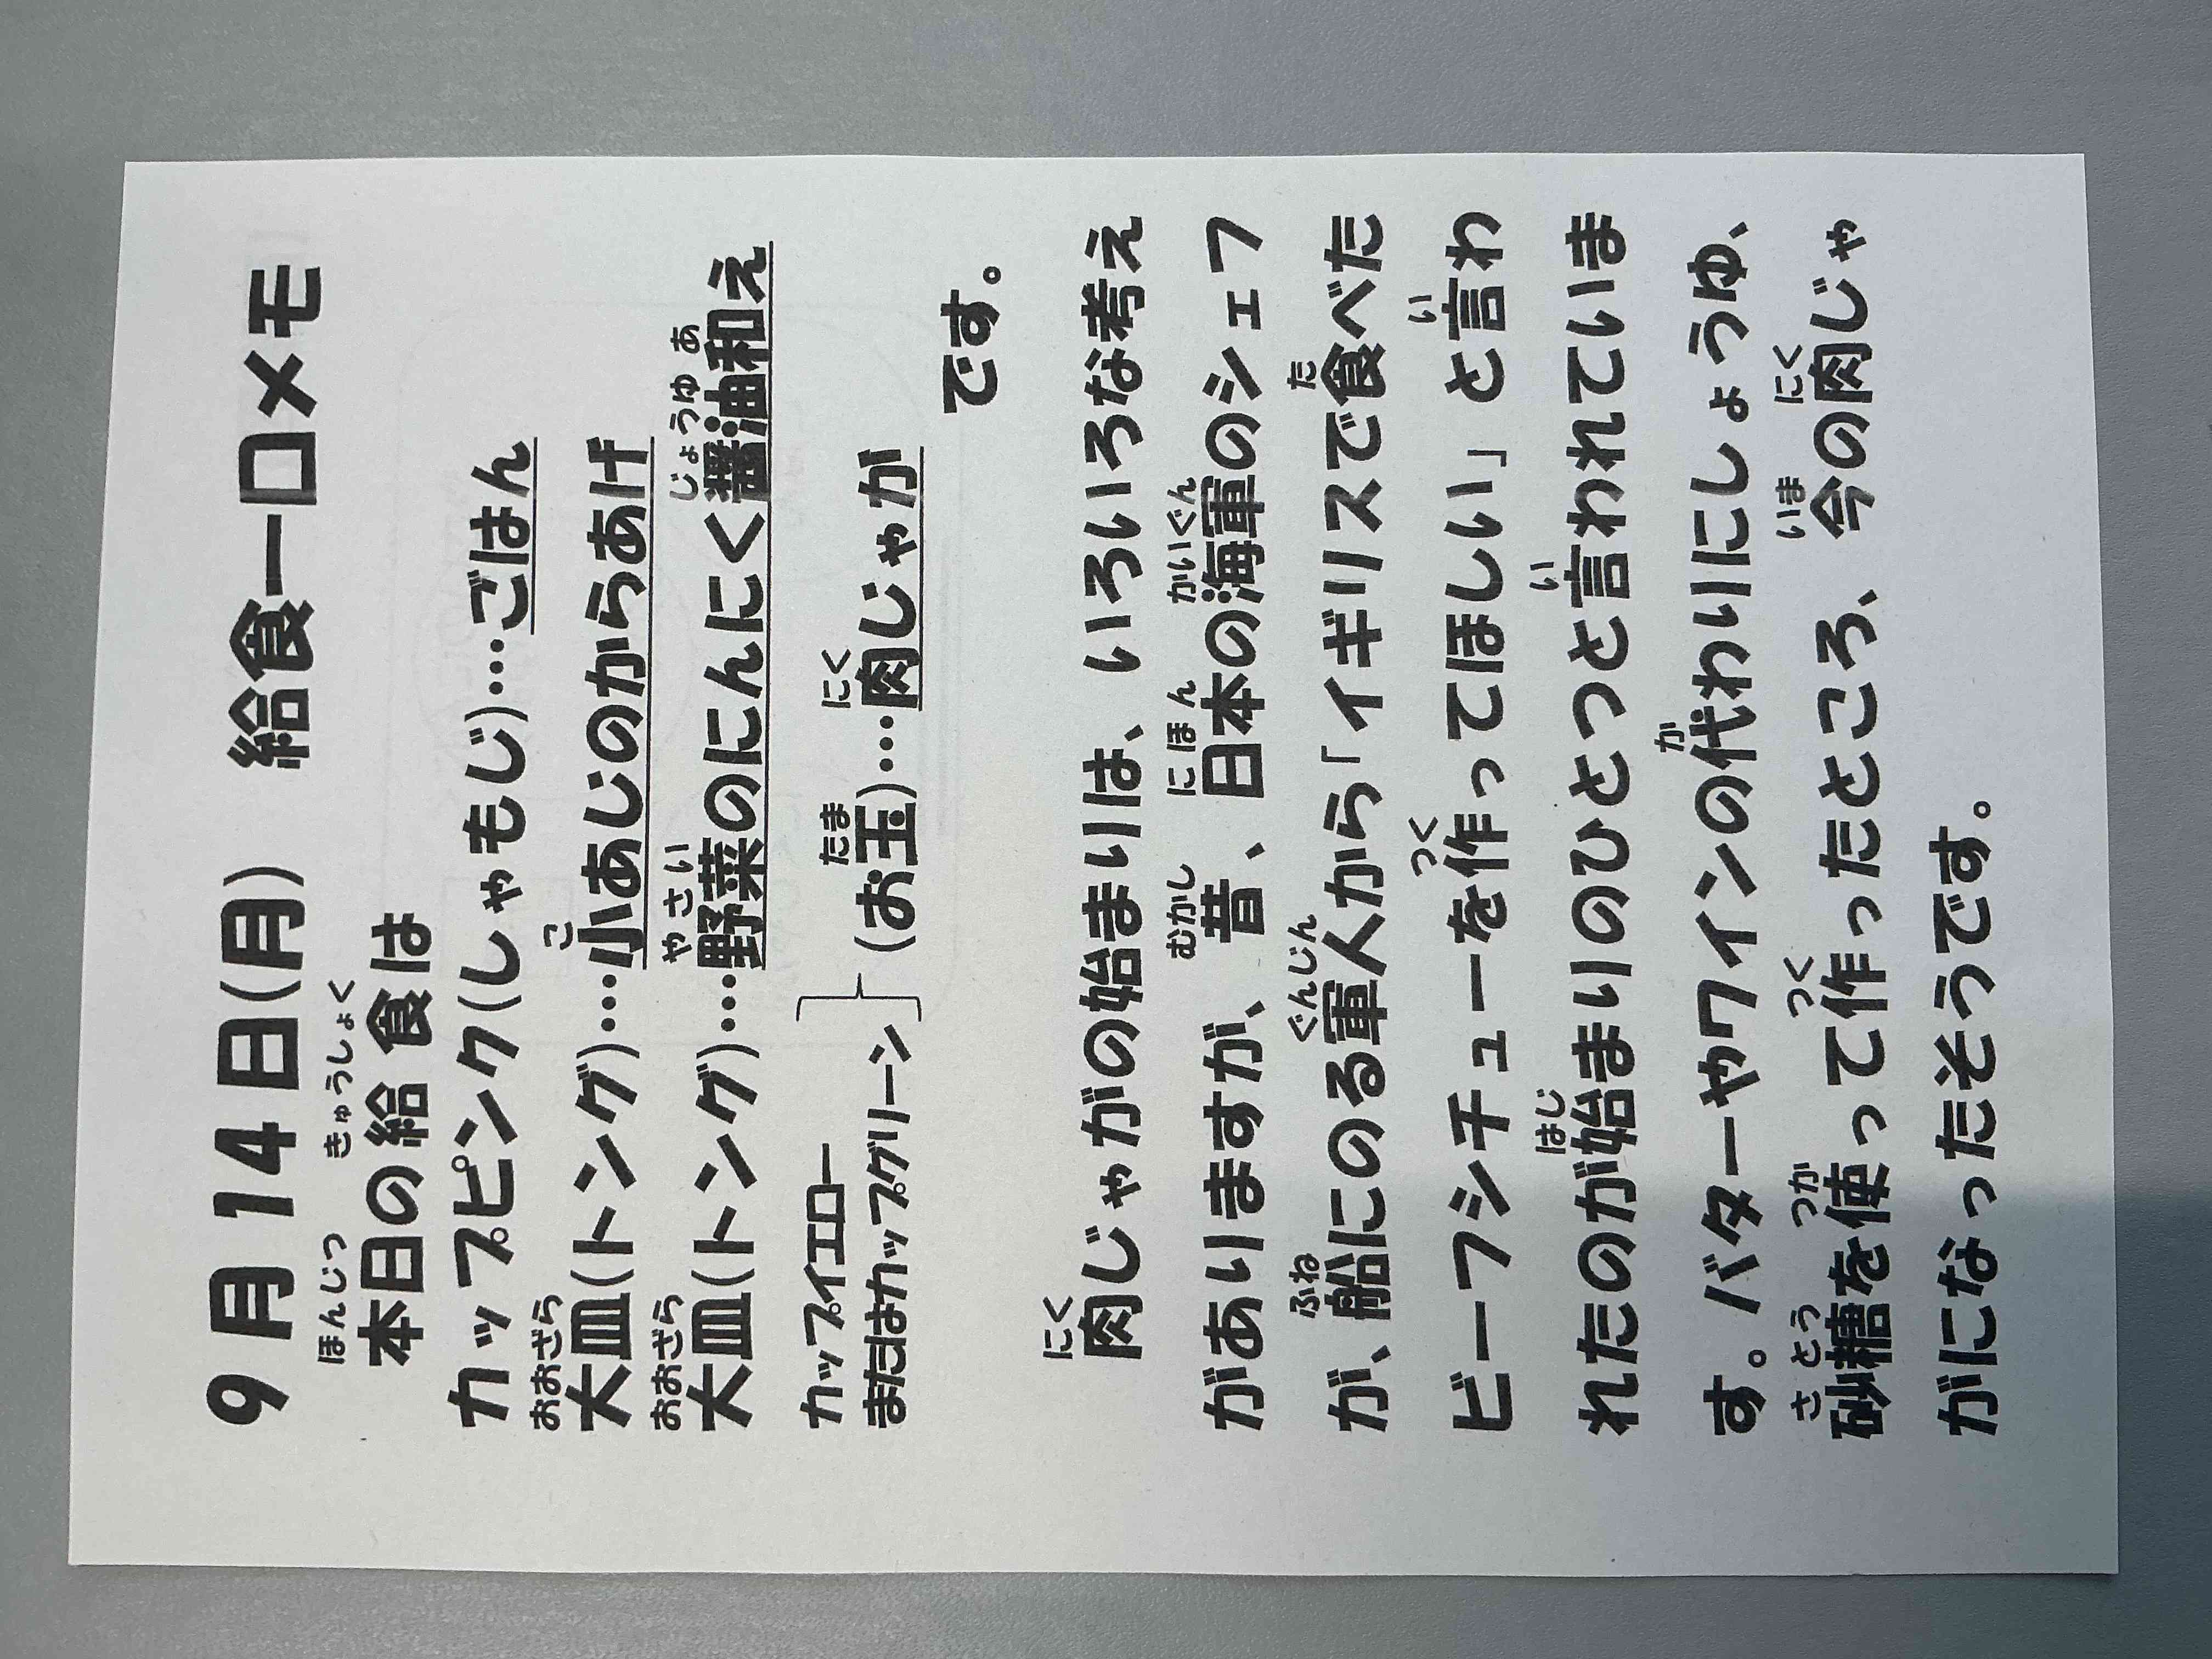 9月14日(月) 給食一口メモ
本日の給食は
カップピンク(しゃもじ)…ごはん
大皿(トング)…小あじのからあげ
大皿(トング)…野菜のにんにく醤油和え
カップイエロー
またはカップグリーン (お玉)…肉じゃが
です。
肉じゃがの始まりは、いろいろな考え
がありますが、昔、日本の海軍のシェフ
が、船にのる軍人から「イギリスで食べた
ビーフシチューを作ってほしい」と言わ
れたのが始まりのひとつと言われていま
す。バターやワインの代わりにしょうゆ、
砂糖を使って作ったところ、今の肉じゃ
がになったそうです。